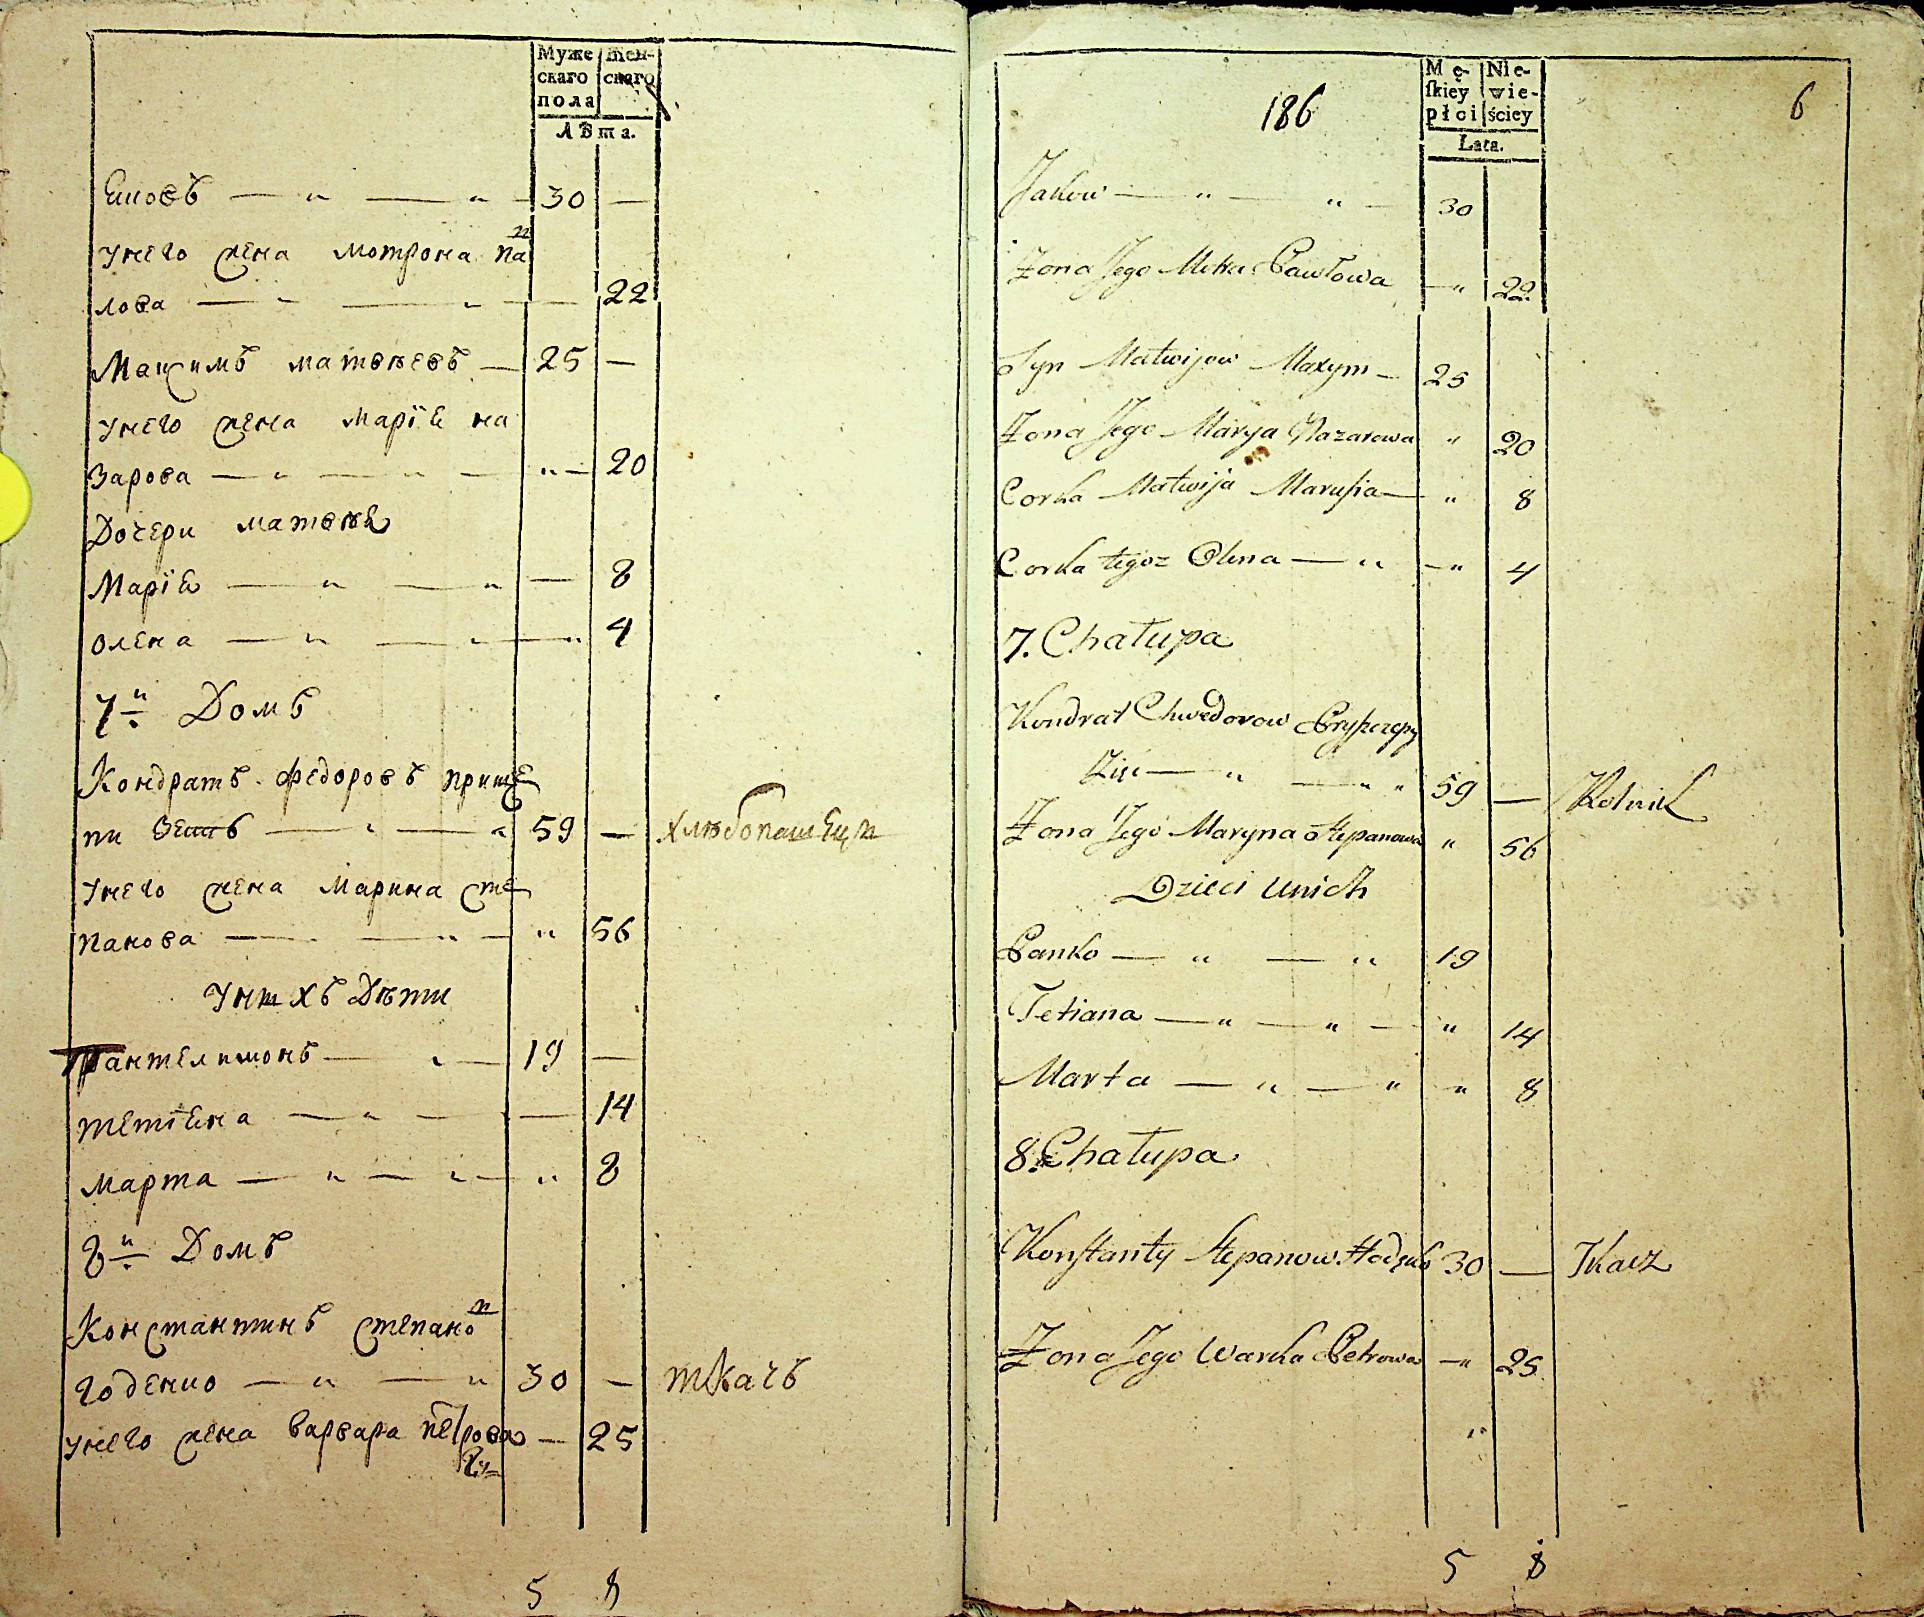 Муже
скаго
пола
Жен-
скаго
Лѣта.
Яковъ — „ — „ — 30 —
унего жена мотрона па
лова — „ — „ — 22
Мацимъ матвѣевъ — 25 —
унего жена марiя на
зарова — „ — „ — „ — 20
Дочери матвѣя
Марiя — „ — „ — 8
олена — „ — „ — „ 4
7й Домъ
Кондратъ федоровъ прище
пи Зять — „ — „ 59 — хлѣбопашецъ
унего жена Марина сте
панова — — „ — „ 56
унихъ Дѣти
Пантелимонъ — „ — 19 —
тетiяна — „ — — 14
марта — „ — „ — „ 8
8й Домъ
Константинъ степано
годенко — „ — „ 30 — ткачъ
унего жена варвара петрова — 25
5 8
186
6
Mę-
skiey
płci
Nie-
wie-
ściey
Lata.
Jakow — „ — „ — 30
Żona Jego Motra Pawłowa — „ 22
Syn Matwijow Maxym — 25
Żona Jego Marya Nazarowa „ 20
Corka Matwija Marusia — „ 8
Corka tegoz Olena — „ — „ 4
7. Chałupa
Kondrat Chwedorow Pryszczepy
Zięć — „ — „ „ 59 — Rolnik
Żona Jego Maryna Stepanowa „ 56
Dzieci unich
Panko — „ — „ 19
Tetiana — „ — „ — „ 14
Marta — „ — „ „ 8
8. Chałupa
Konstanty Stepanow Hodenko 30 — Tkacz
Żona Jego Warka Petrowa — „ 25
„
5 8